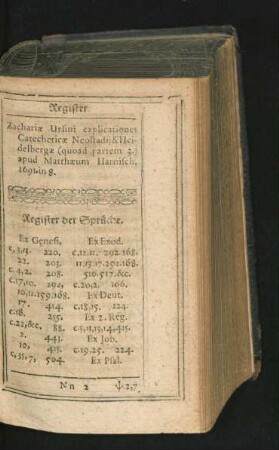 Register
Zachariæ Ursini explicationes
Catecheticæ Neostadij & Hei-
delbergæ (quoad partem 3.)
apud Matthæum Harnisch,
1691. in 8.
Register der Sprüche.
Ex Genesi,
c, 3, 14. 220.
22. 203.
c. 4, 2. 208.
c. 17, 10. 292,
10, 11. 159. 168.
17. 414.
c. 18. 255.
c. 22, &c. 88.
2. 443.
10, 435.
c, 35, 7, 504.
Ex Exod.
c. 12. 11. 292. 168.
11. 13. 17. 292. 168.
516. 517. &c.
c. 20, 2. 106.
Ex Deut.
c. 18, 15. 224.
Ex 2. Reg.
c. 5, 11, 13, 14, 415.
Ex Job.
c. 19. 25. 224.
Ex Psal.
N n 2 ψ. 2, 7